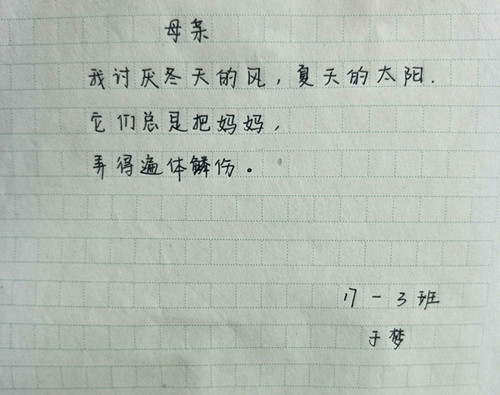 母亲
我讨厌冬天的风，夏天的太阳.
它们总是把妈妈，
弄得遍体鳞伤。
17-3班
于梦